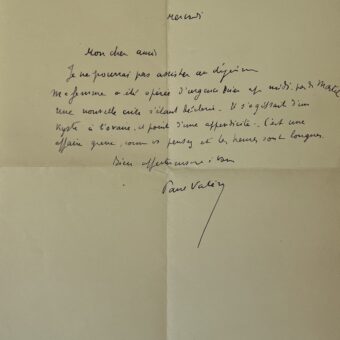 Mercredi
Mon cher ami
Je ne pourrai pas assister au déjeuner
Ma femme a été opérée d'urgence hier après midi par de Martel
une nouvelle crise s'étant déclarée. Il s'agissait d'un
Kyste à l'ovaire, et point d'une appendicite. C'est une
affaire grave, comme vous pensez et les heures sont longues.
Bien affectueusement
Paul Valéry